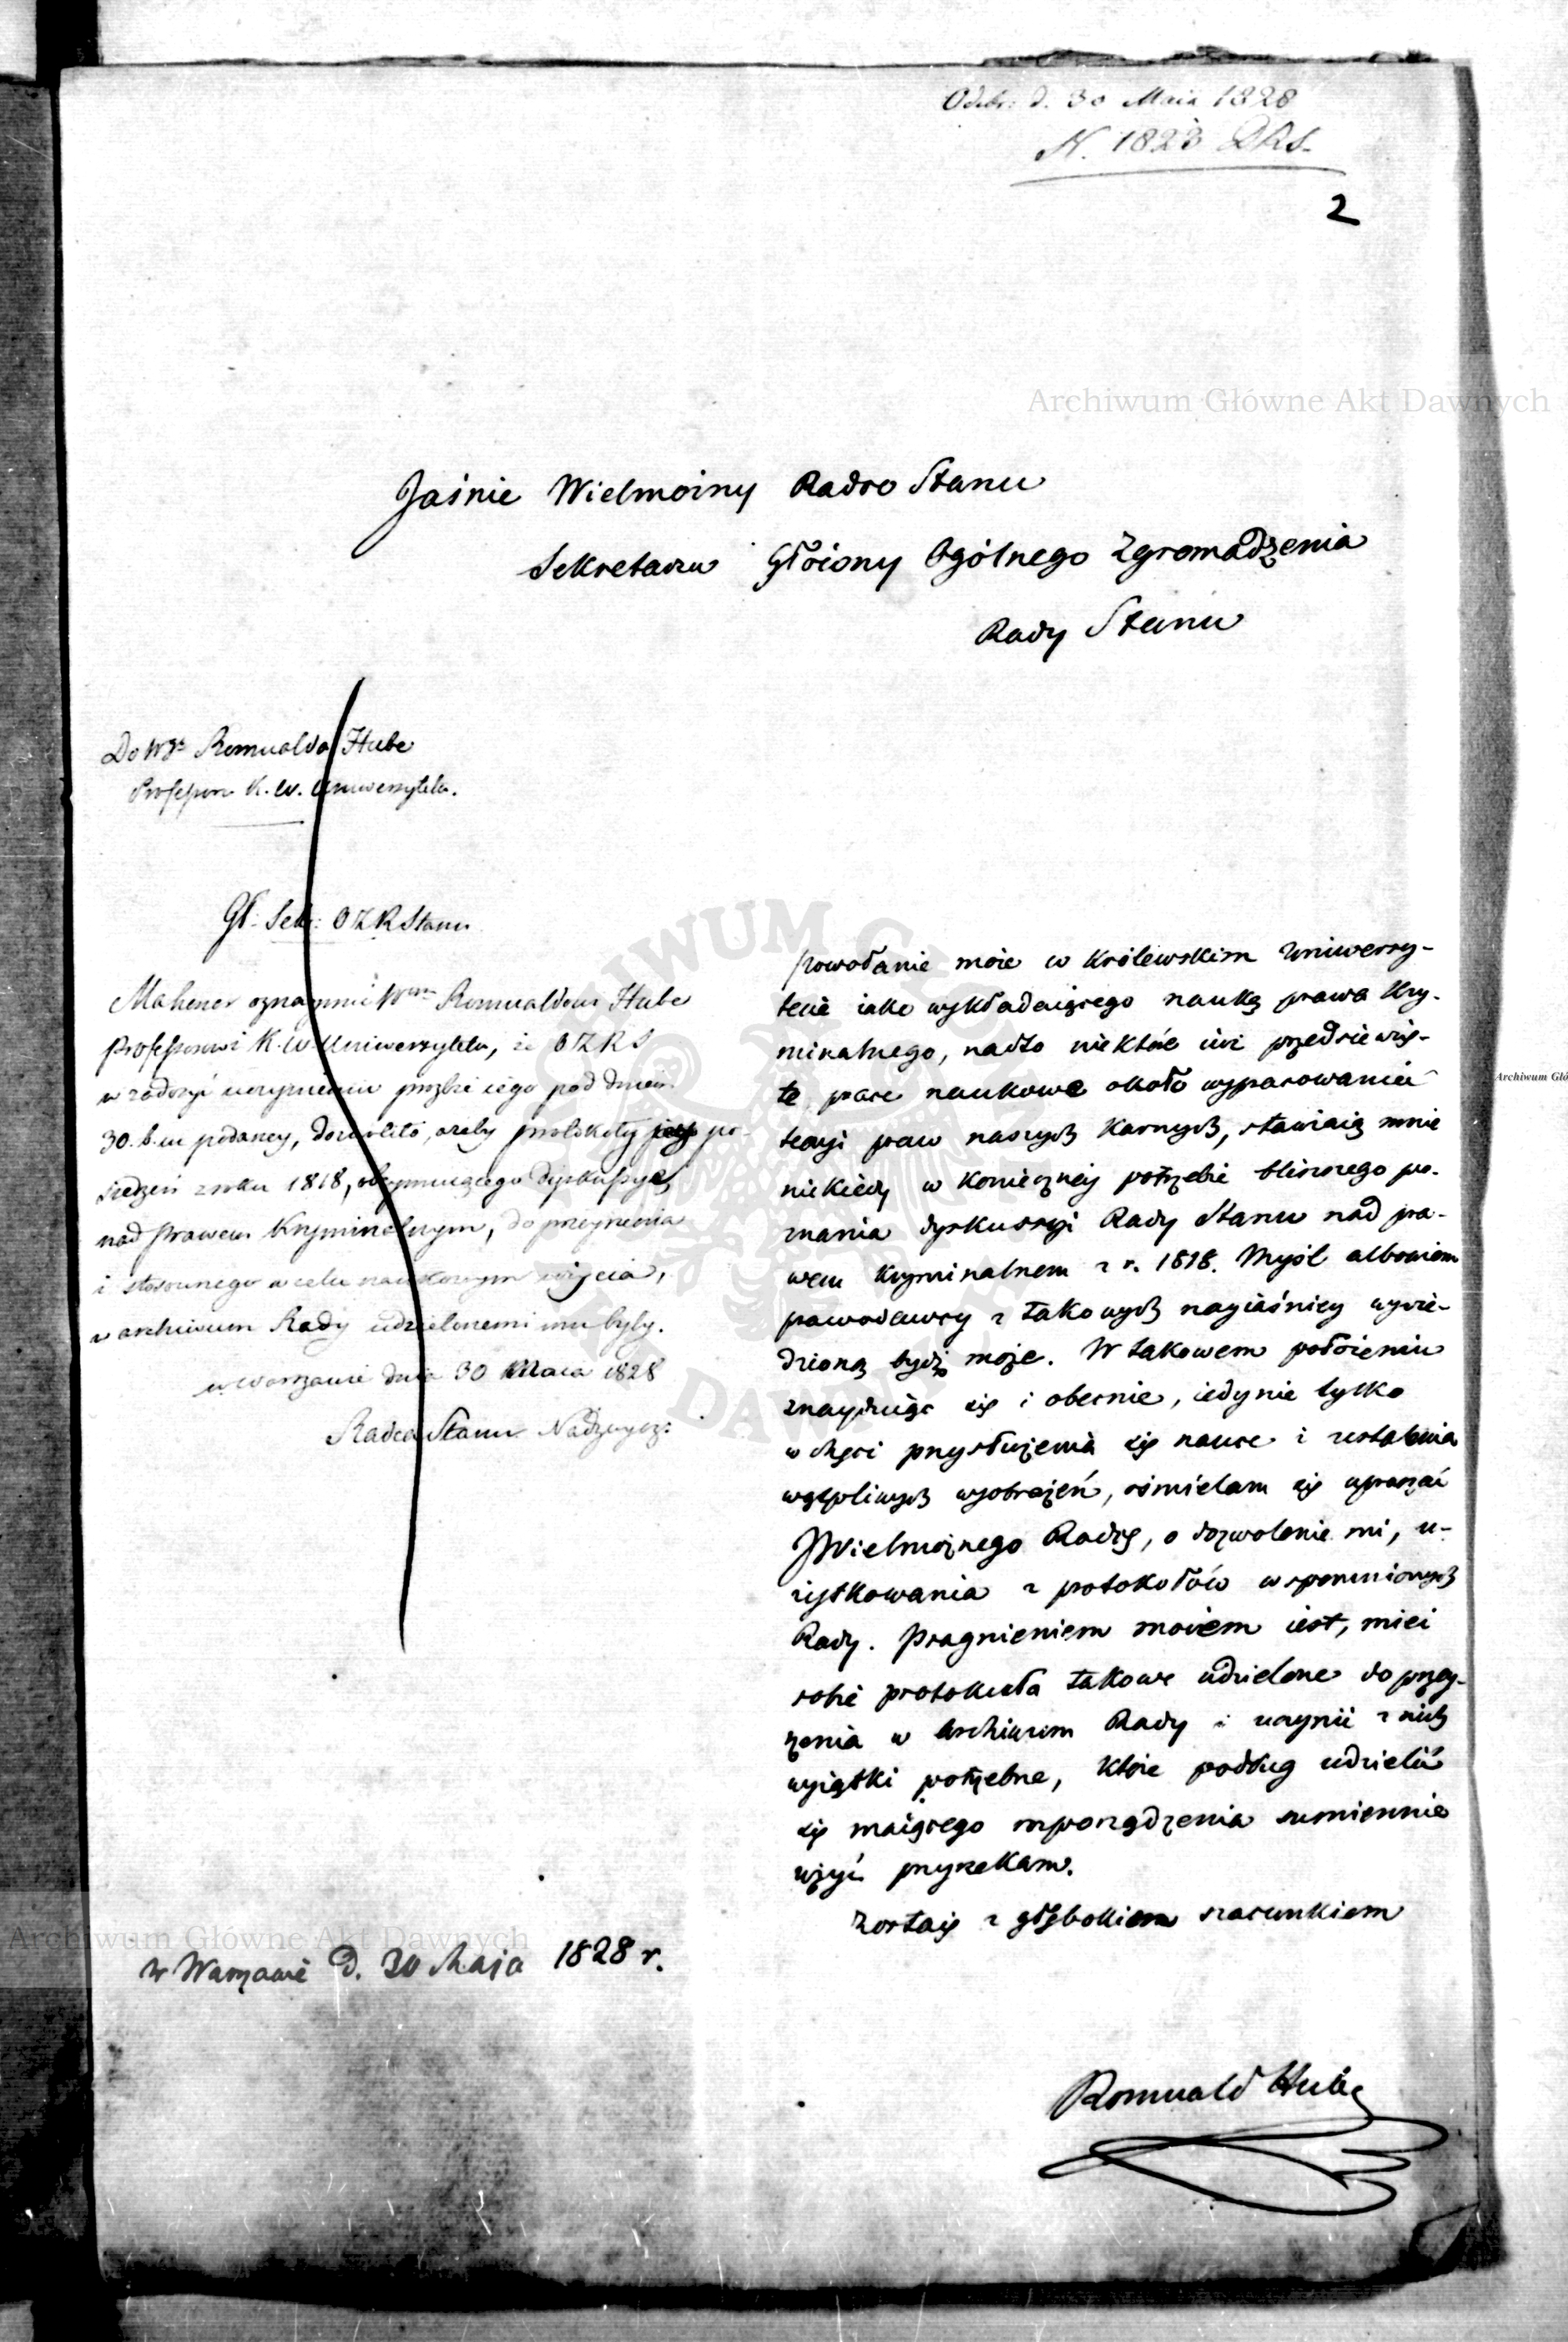 Odebr: d. 30 Maia 1828
N. 1823 DRS.
2
Archiwum Główne Akt Dawnych
Jaśnie Wielmożny Radco Stanu
Sekretarzu Główny Ogólnego Zgromadzenia
Rady Stanu
Do Wgo Romualda Hube
Professora K. W. Uniwersytetu.
Gł. Sek: OZRStanu
Ma honor oznaymić Wmu Romualdowi Hube
Professorowi K. W. Uniwersytetu, iż OZRS
w zadosyć uczynieniu prośbie iego pod dniem
30. b. m. podaney, dozwoliło, ażeby protokóły po-
siedzeń z roku 1818, obeymuiącego dyskussye
nad Prawem Kryminalnym, do przeyrzenia
i stosownego w celu naukowym użycia,
w archiwum Rady udzielonemi mu były.
w Warszawie dnia 30 Maia 1828
Radca Stanu Nadzwycz:
Powołanie moie w Królewskim Uniwersy-
tecie iako wykładaiącego naukę prawa Kry-
minalnego, nadto niektóre iuż przedsiewzię-
te prace naukowe około wypracowania
teoryi praw naszych karnych, stawiaią mnie
niekiedy w konieczney potrzebie bliższego po-
znania dyskussyi Rady Stanu nad pra-
wem kryminalnem z r. 1818. Myśl albowiem
prawodawcy z takowych nayiaśniey wywie-
dzioną bydź może. W takowem położeniu
znayduiąc się i obecnie, iedynie tylko
w chęci przysłużenia się nauce i ustalenia
wątpliwych wyobrażeń, ośmielam się upraszać
JWielmożnego Radcę, o dozwolenie mi, u-
żytkowania z protokołów wspomnionych
Rady. Pragnieniem moiem iest, mieć
sobie protokuła takowe udzielone do przey-
rzenia w Archiwum Rady i uczynić z nich
wyiątki potrzebne, które podług udzielić
się maiącego rozporządzenia sumiennie
użyć przyrzekam.
Zostaię z głębokiem szacunkiem
Archiwum Główne Akt Dawnych
w Warszawie d. 30 Maja 1828 r.
Romuald Hube